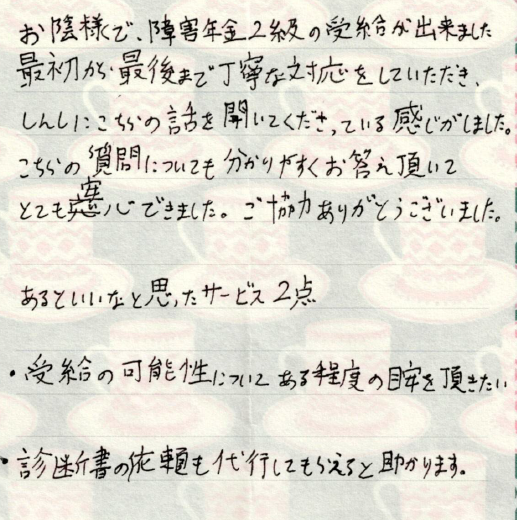 お陰様で、障害年金2級の受給が出来ました
最初から最後まで丁寧な対応をしていただき、
しんしにこちらの話を聞いてくださっている感じがしました。
こちらの質問についても分かりやすくお答え頂いて
とても安心できました。ご協力ありがとうございました。
あるといいなと思ったサービス2点
・受給の可能性について ある程度の目安を頂きたい
・診断書の依頼も代行してもらえると助かります。